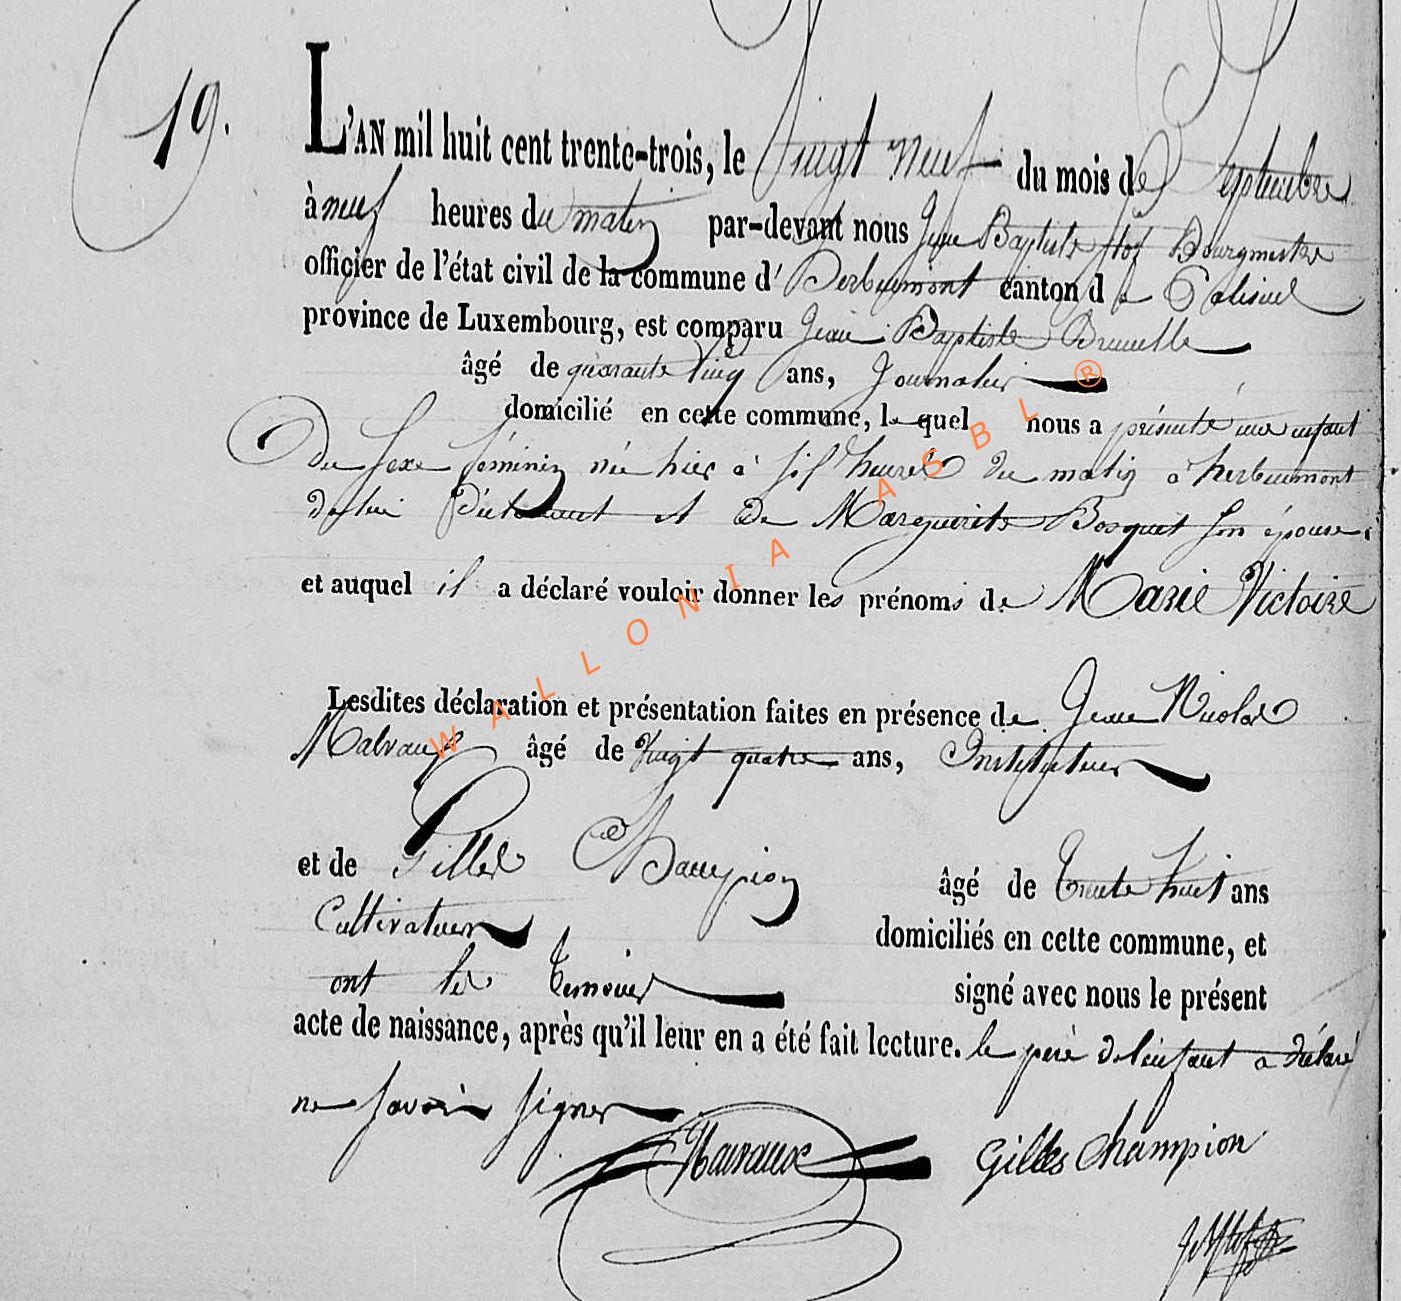 19.
L'AN mil huit cent trente-trois, le Vingt neuf du mois de Septembre
à neuf heures du matin par-devant nous Jean Baptiste Bourgmestre
officier de l'état civil de la commune d'herbeumont canton de Paliseul
province de Luxembourg, est comparu Jean Baptiste
âgé de quarante cinq ans, Journalier
domicilié en cette commune, lequel nous a présenté une enfant
du sexe féminin née hier à six heures du matin à herbeumont
de lui Déclarant et de Marguerite Bosquet son épouse
et auquel il a déclaré vouloir donner les prénoms de Marie Victoire
Lesdites déclaration et présentation faites en présence de Jean Nicolas
âgé de Vingt quatre ans, Instituteur
et de Gilles Champion âgé de Trente huit ans
Cultivateur domiciliés en cette commune, et
ont les Temoins signé avec nous le présent
acte de naissance, après qu'il leur en a été fait lecture. le père de l'enfant a déclaré
ne savoir signer
Gilles Champion
WALLONIA ASBL ®